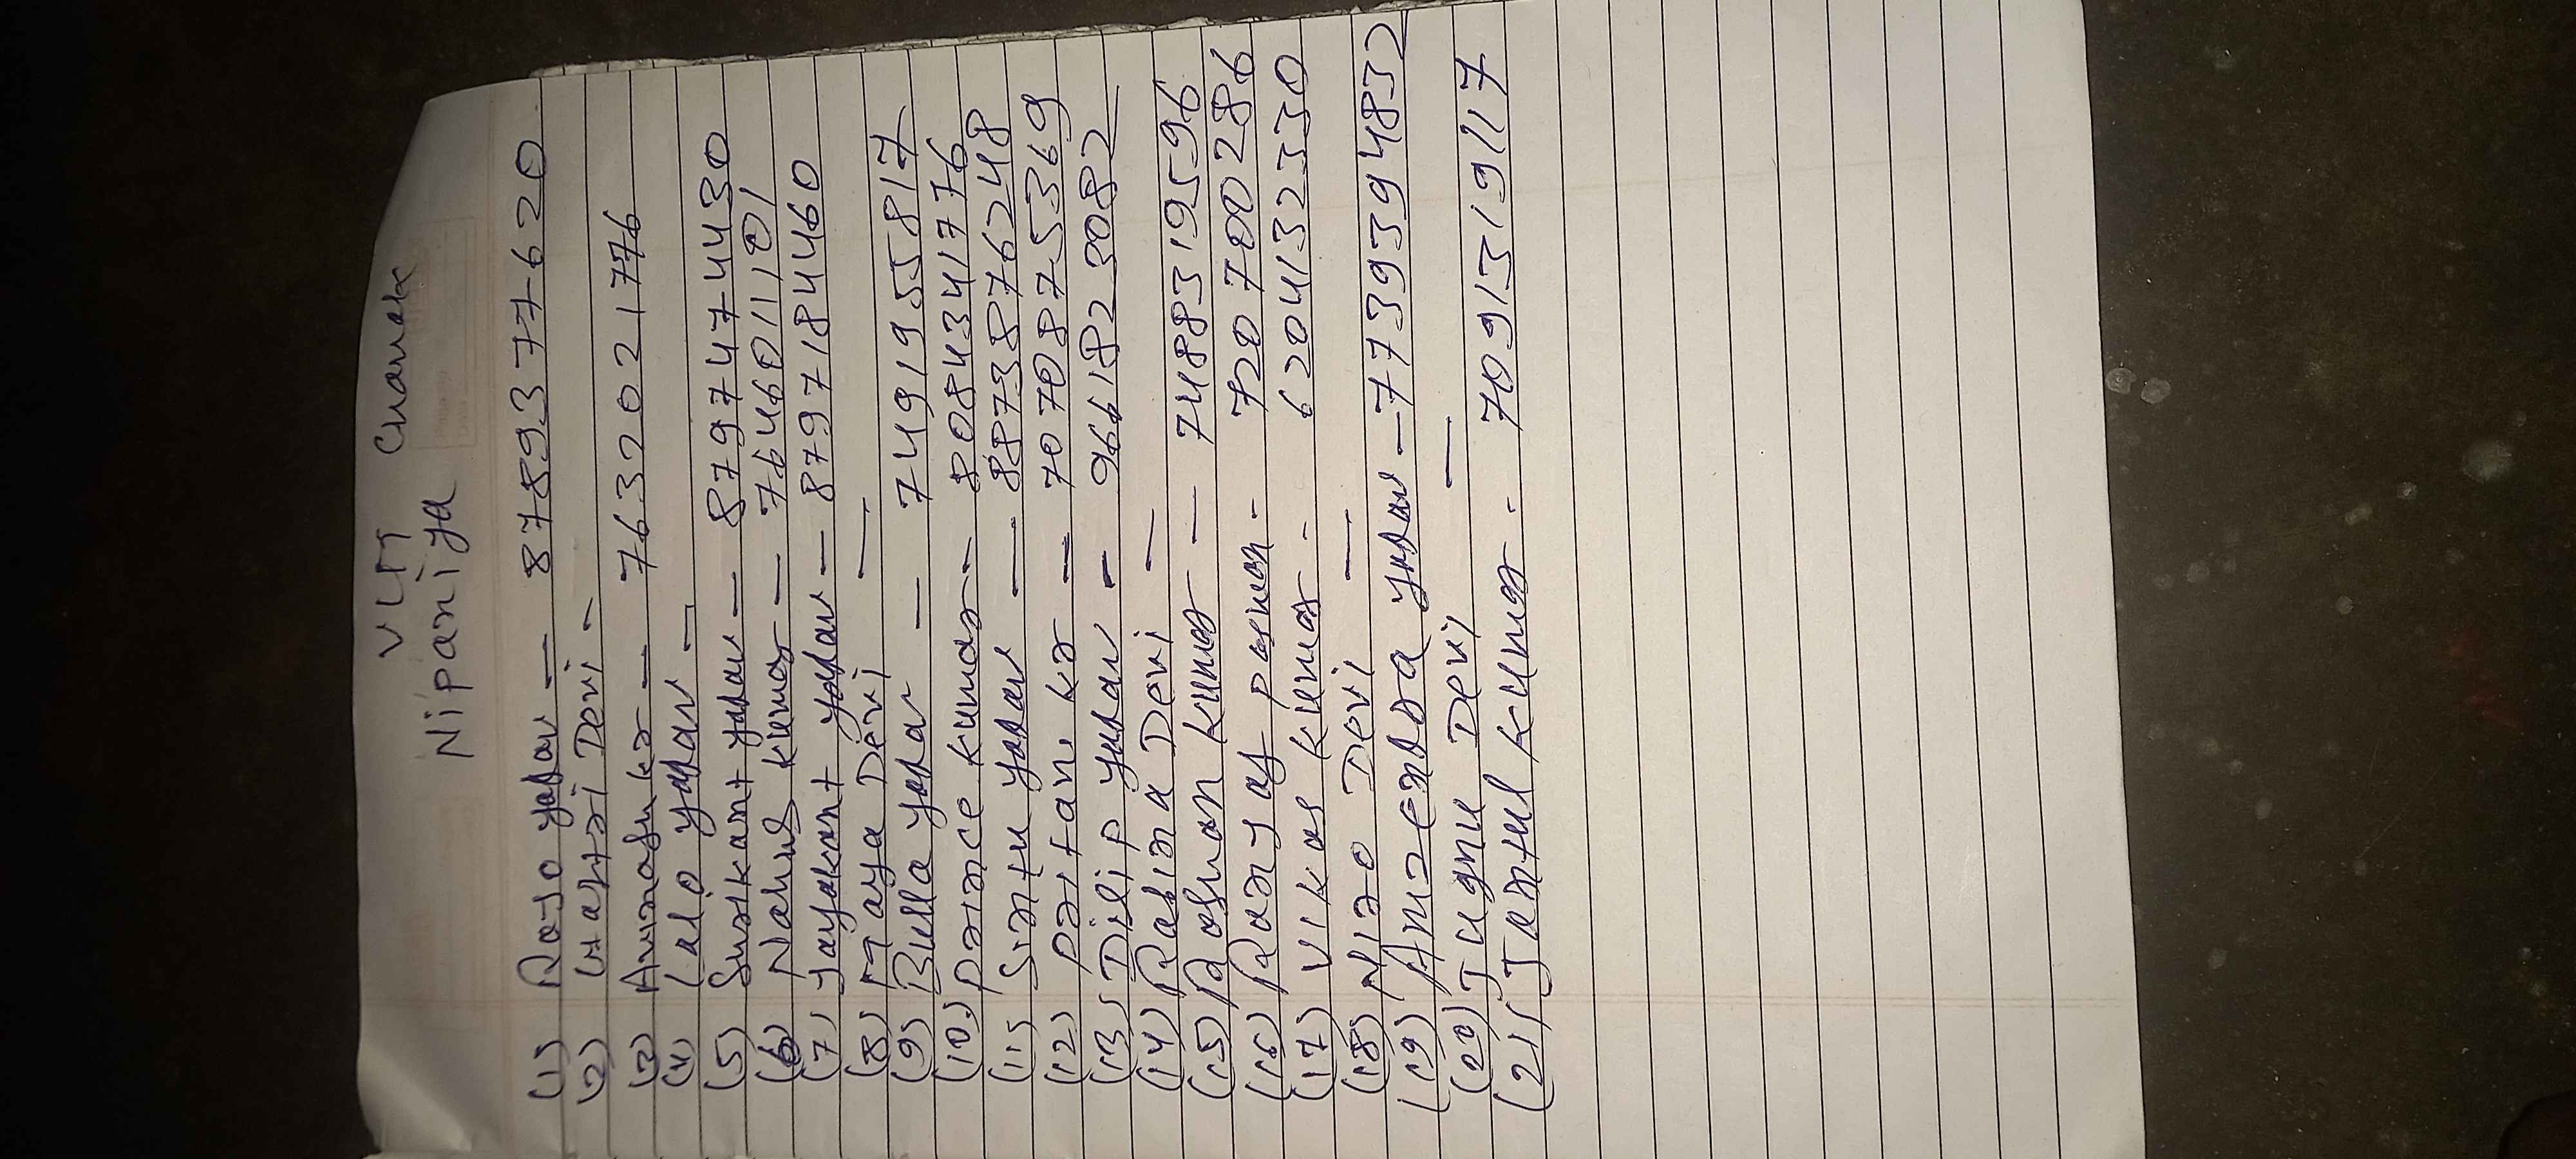 Vill Chanak
Nipaniya
(1) Rajo yadav — 8789377620
(2) Devi -
(3) Avinash kr — 7632021776
(4) Lalo yadav -
(5) Surikant yadav — 8797474430
(6) kumar — 7646011101
(7) Jayakant yadav — 8797184460
(8) Maya Devi —
(9) Bulla yadav — 7491955817
(10) prince kumar — 8084341776
(11) Sintu yadav — 8873876248
(12) pritam kr — 7070875369
(13) Dilip yadav - 9661823082
(14) Devi —
(15) Roshan kumar — 7488319596
(16) Ranjay - 720700286
(17) Vikas kumar - 6204132330
(18) Niro Devi —
(19) yadav — 7739394832
(20) Jugnu Devi —
(21) kumar - 7091319117